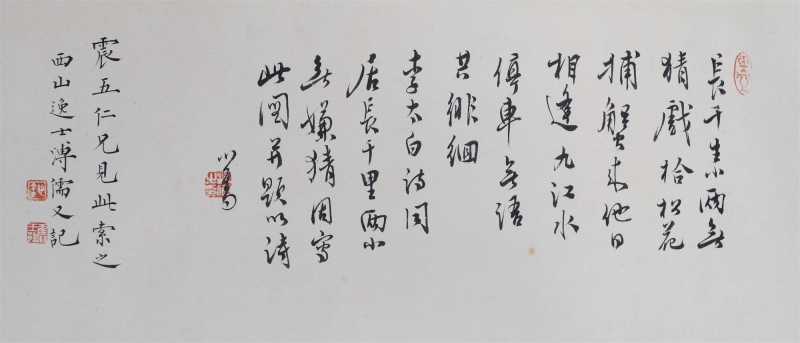 長干生小兩無
猜戲拾松花
捕蟹來他日
相逢九江水
停車無語
共徘徊
李太白詩同
居長干里兩小
無嫌猜因寫
此圖并題以詩
心畬
震五仁兄見此索之
西山逸士溥儒又記